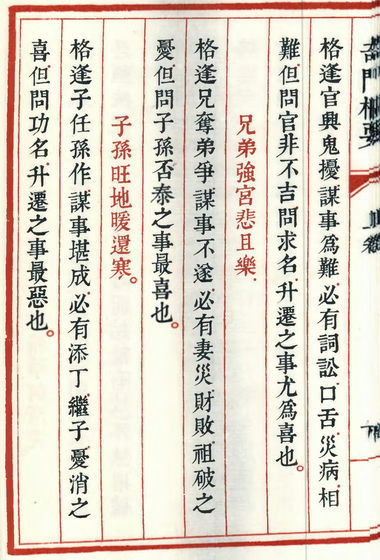 格逢官興鬼擾謀事爲難必有詞訟口舌災病相
難但問官非不吉問求名升遷之事尤爲喜也。
兄弟強宮悲且樂.
格逢兄奪弟爭謀事不遂必有妻災財敗祖破之
憂但問子孫否泰之事最喜也。
子孫旺地暖還寒。
格逢子任孫作謀事堪成必有添丁繼子憂消之
喜但問功名升遷之事最惡也。